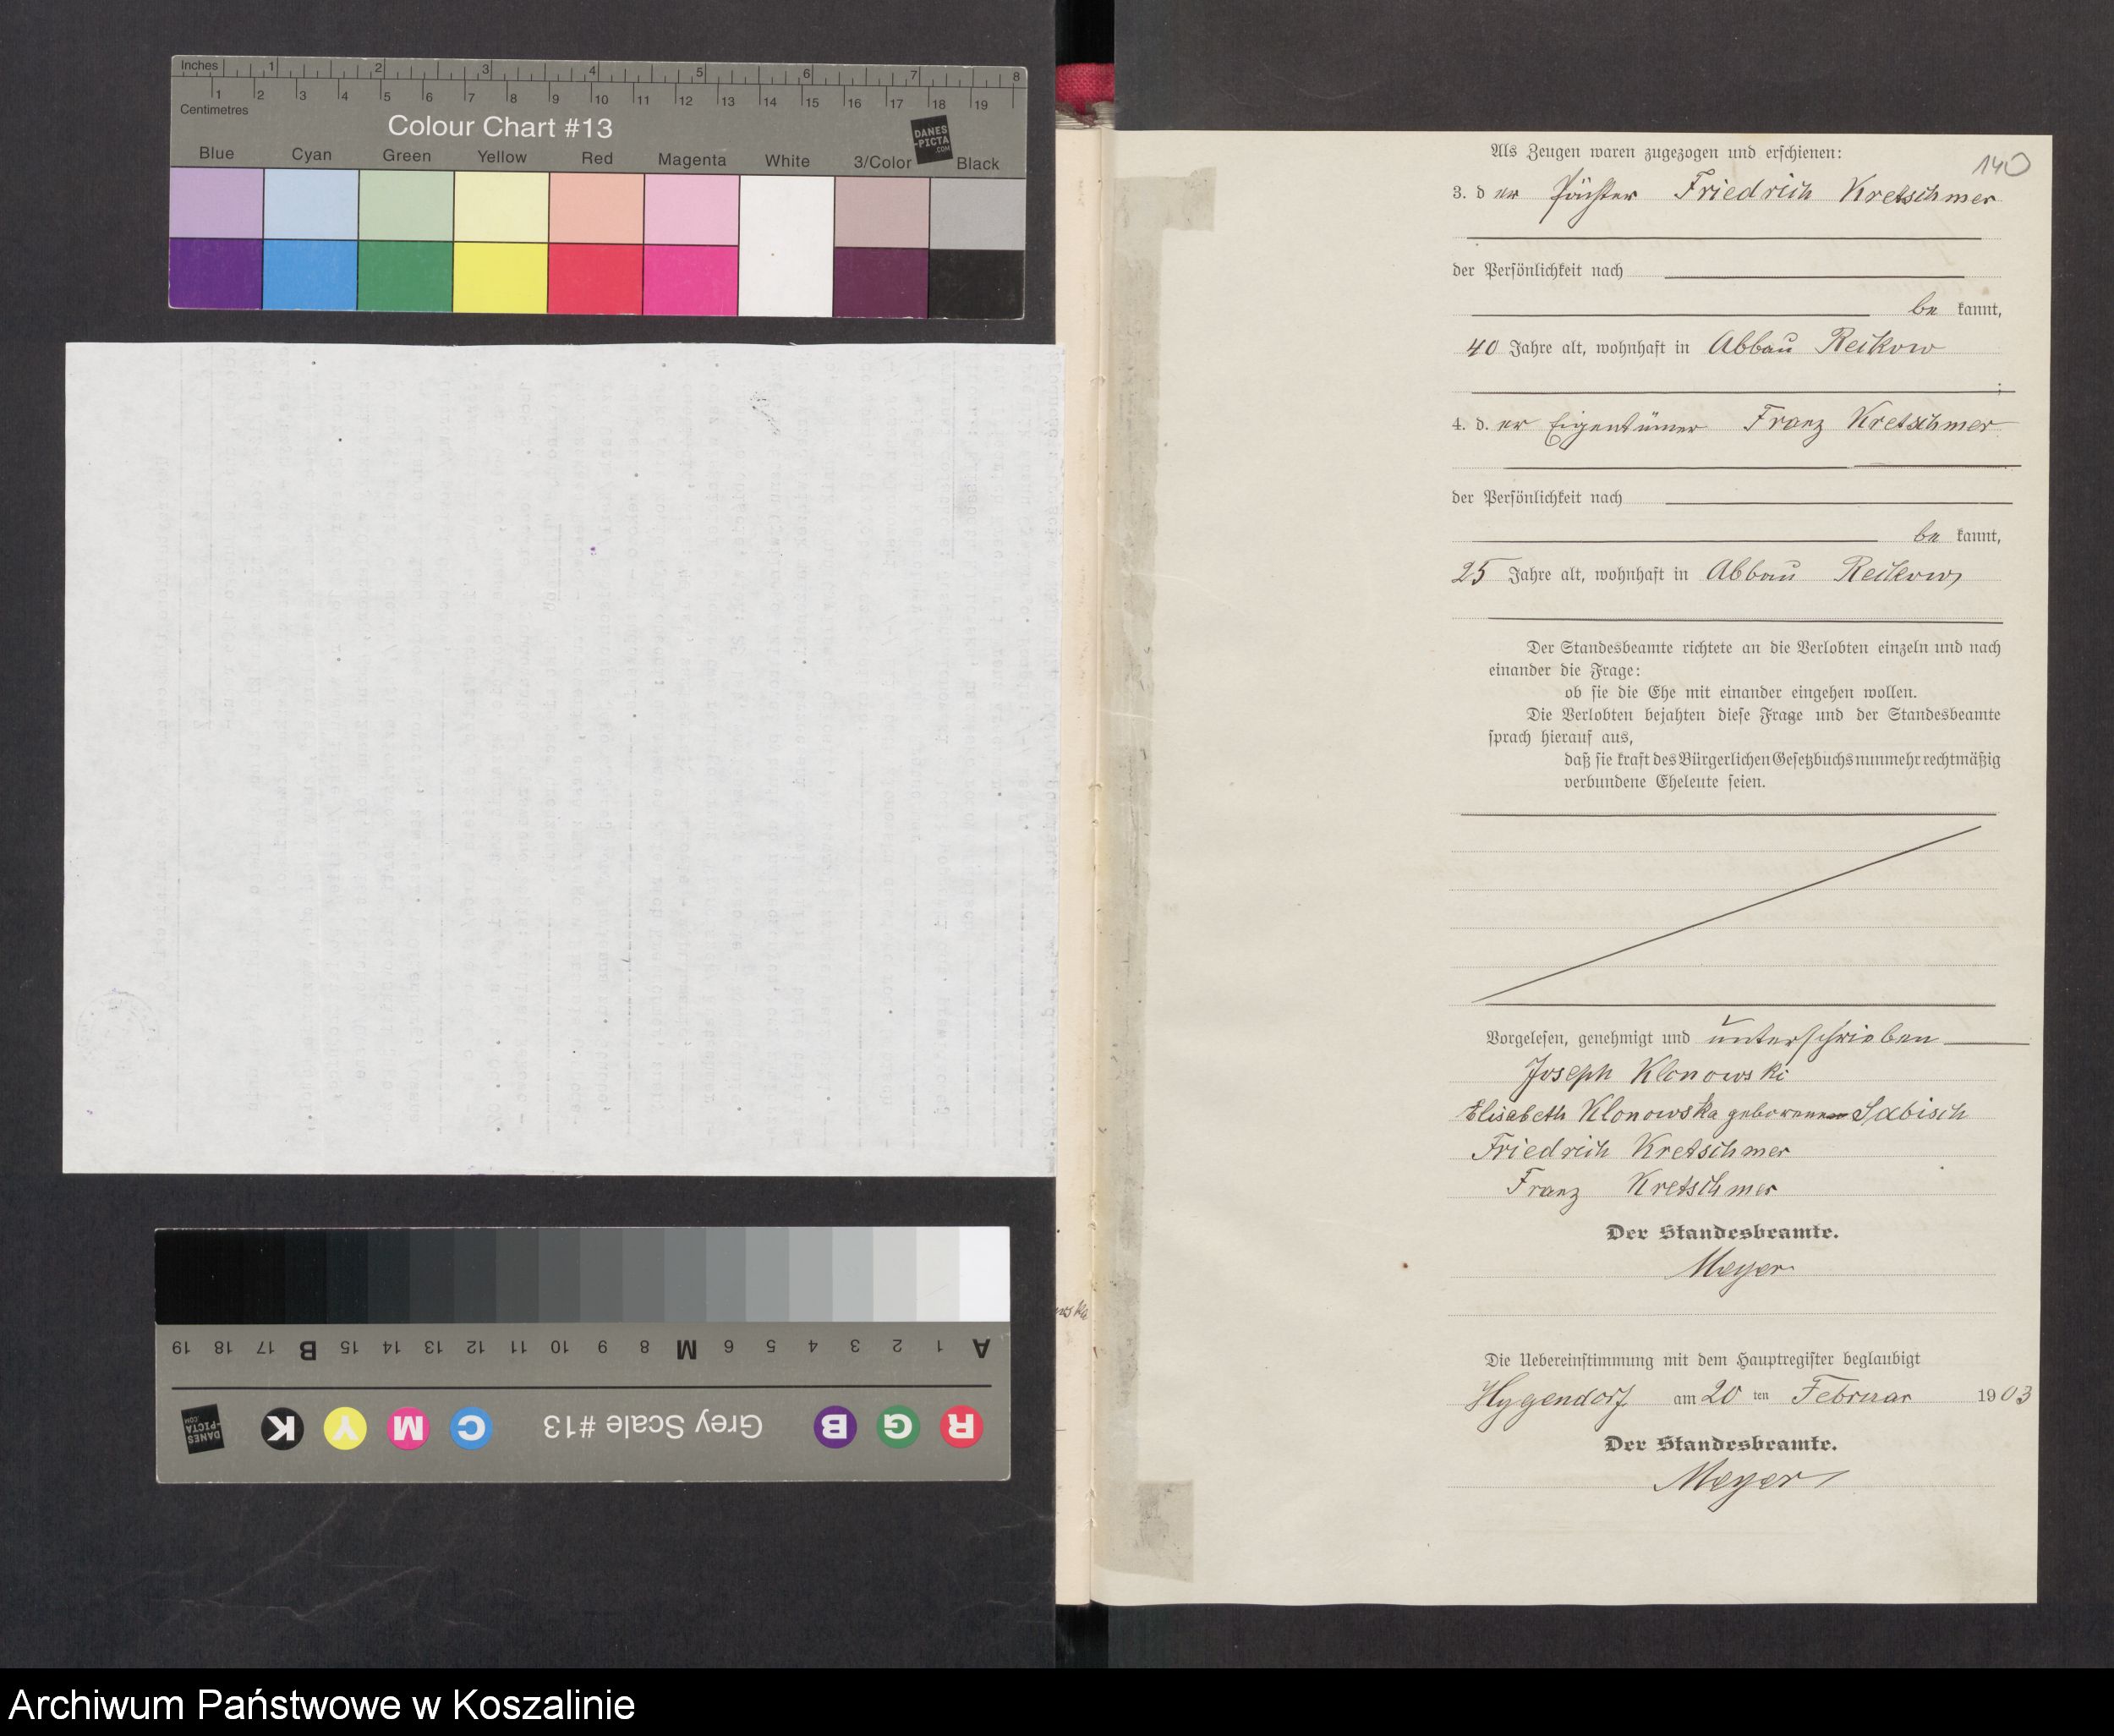 Inches 1 2 3 4 5 6 7 8
1 2 3 4 5 6 7 8 9 10 11 12 13 14 15 16 17 18 19
Centimetres
Colour Chart #13
DANES
-PICTA
.COM
Blue Cyan Green Yellow Red Magenta White 3/Color Black
A 1 2 3 4 5 6 M 8 9 10 11 12 13 14 15 B 17 18 19
R G B Grey Scale #13 C M Y K
DANES
-PICTA
.COM
140
Als Zeugen waren zugezogen und erschienen:
3. der Friedrich Kretschmer
der Persönlichkeit nach
be kannt,
40 Jahre alt, wohnhaft in Abbau Reikow
;
4. d. er Eigentümer Franz Kretschmer
der Persönlichkeit nach
be kannt,
25 Jahre alt, wohnhaft in Abbau Reikow
Der Standesbeamte richtete an die Verlobten einzeln und nach
einander die Frage:
ob sie die Ehe mit einander eingehen wollen.
Die Verlobten bejahten diese Frage und der Standesbeamte
sprach hierauf aus,
daß sie kraft des Bürgerlichen Gesetzbuchs nunmehr rechtmäßig
verbundene Eheleute seien.
Vorgelesen, genehmigt und unterschrieben
Joseph Klonowski
Elisabeth Klonowska geborene Sabisch
Friedrich Kretschmer
Franz Kretschmer
Der Standesbeamte.
Meyer
Die Uebereinstimmung mit dem Hauptregister beglaubigt
Hygendorf am 20 ten Februar 1903
Der Standesbeamte.
Meyer
Archiwum Państwowe w Koszalinie